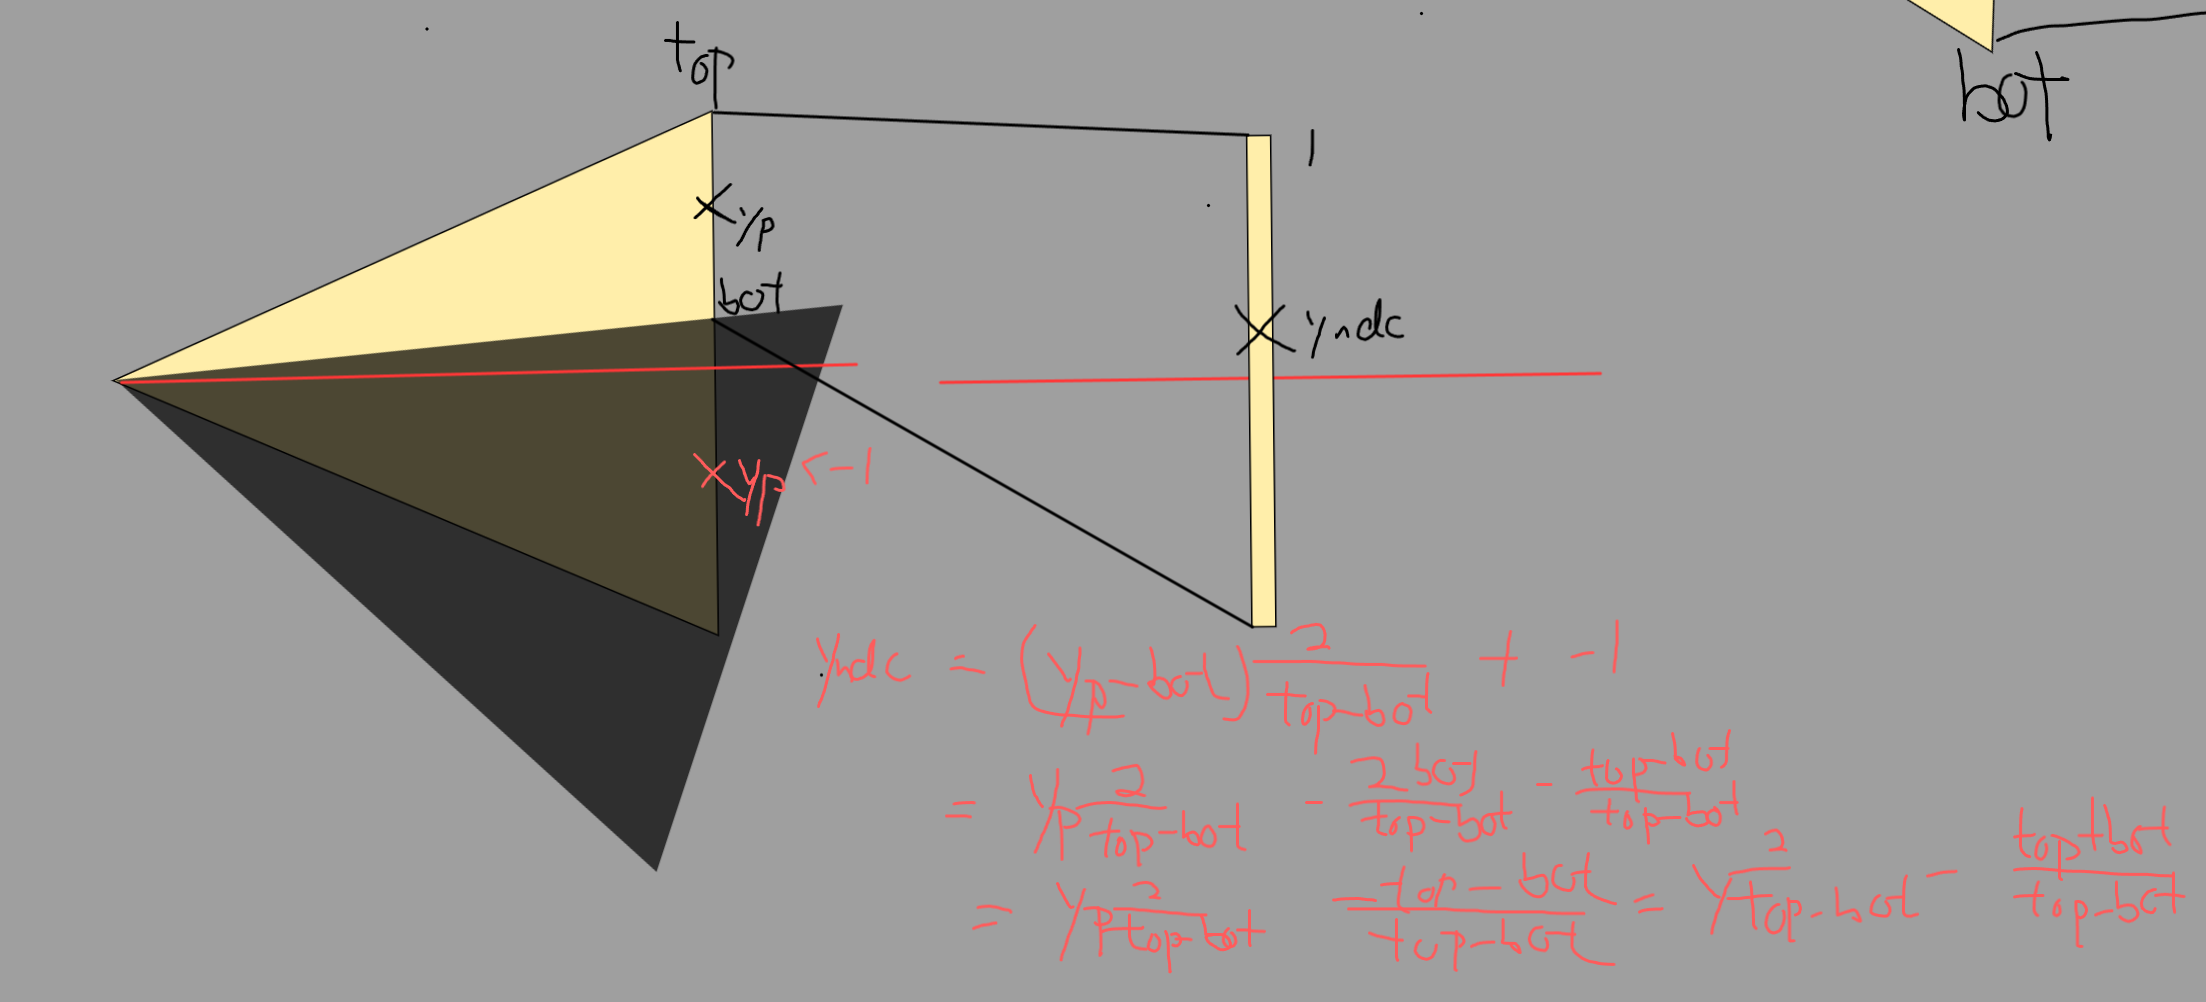 top
bot
1
yp
bot
yndc
yp < -1
yndc = (yp - bot) 2/(top - bot) + -1
= yp 2/(top - bot) - 2bot/(top - bot) - (top - bot)/(top - bot)
= yp 2/(top - bot) (-top - bot)/(top - bot) = y 2/(top - bot) - (top + bot)/(top - bot)